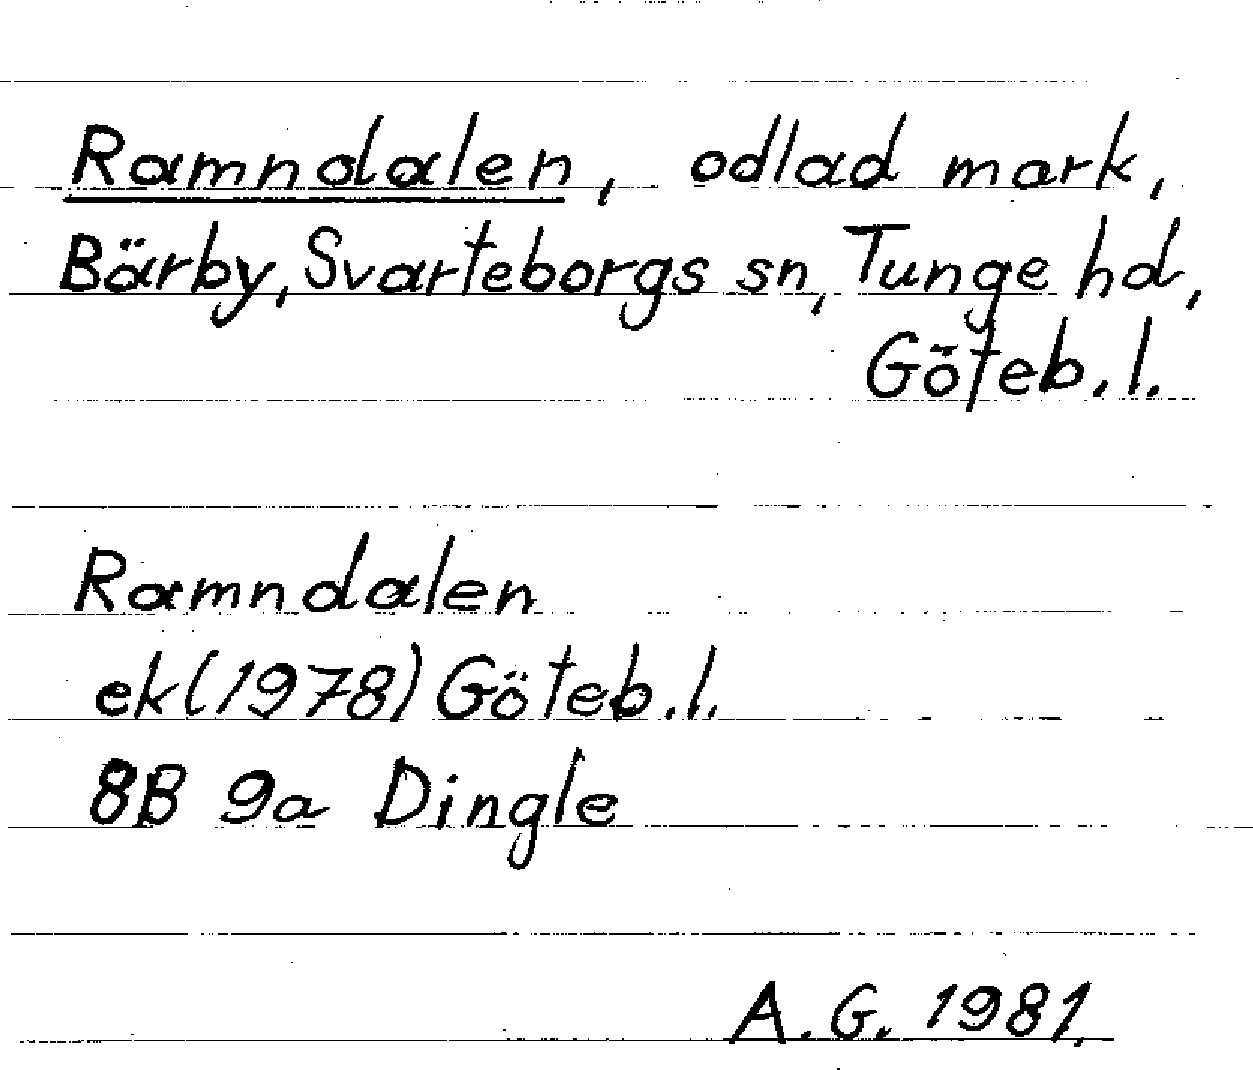 Ramndalen, odlad mark,
Bärby, Svarteborgs sn, Tunge hd,
Göteb. l.
Ramndalen
ek (1978) Göteb. l.
8B 9a Dingle
A. G. 1981.